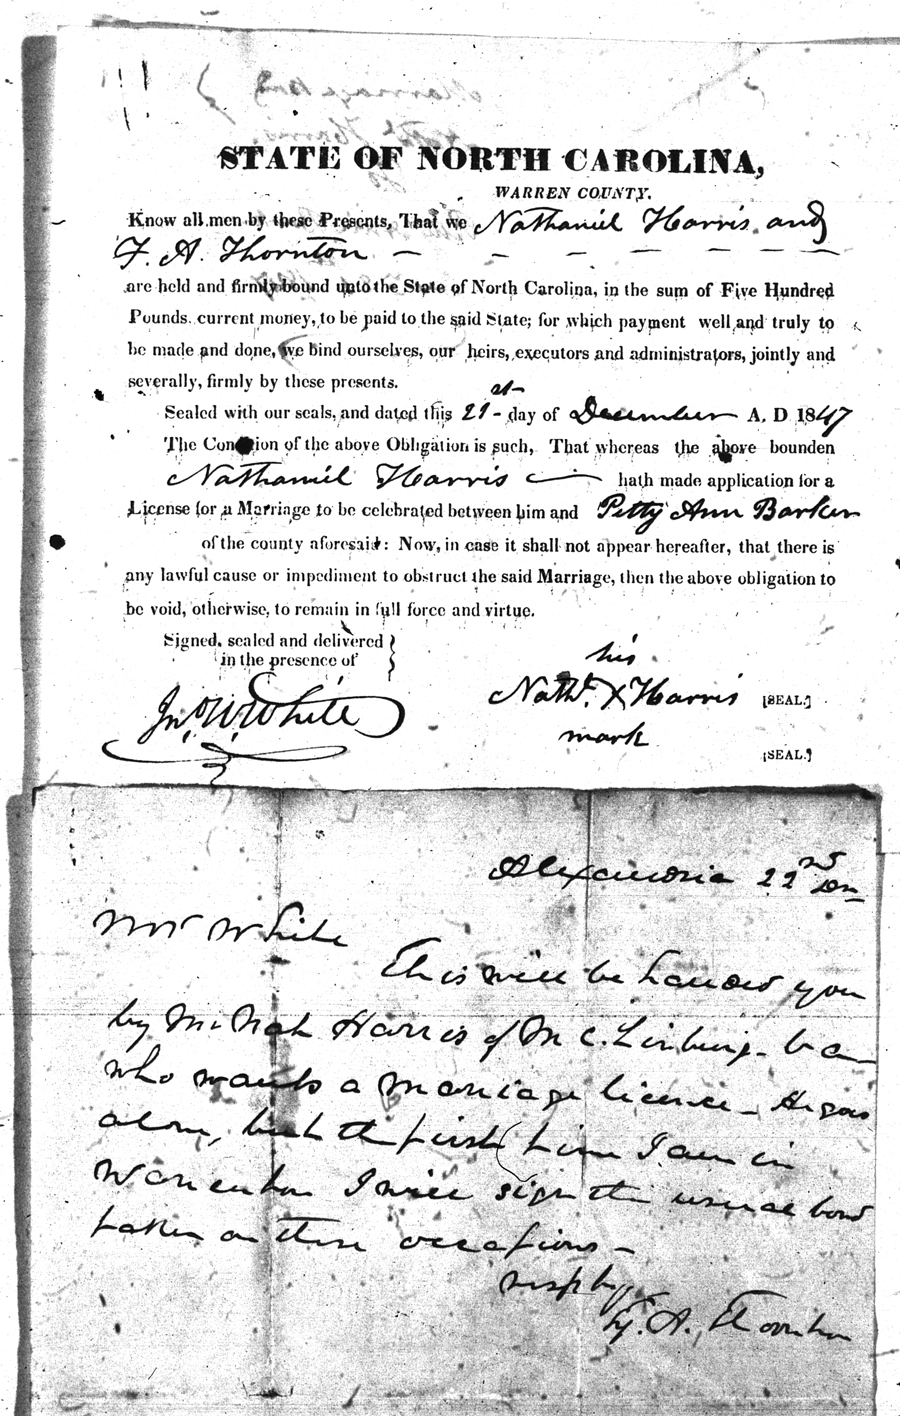 STATE OF NORTH CAROLINA,
WARREN COUNTY.
Know all men by these Presents, That we Nathaniel Harris and
F. A. Thornton
are held and firmly bound unto the State of North Carolina, in the sum of Five Hundred
Pounds current money, to be paid to the said State; for which payment well and truly to
be made and done, we bind ourselves, our heirs, executors and administrators, jointly and
severally, firmly by these presents.
Sealed with our seals, and dated this 21st day of December A. D 1847
The Condition of the above Obligation is such, That whereas the above bounden
Nathaniel Harris hath made application for a
License for a Marriage to be celebrated between him and Petty Ann Barker
of the county aforesaid: Now, in case it shall not appear hereafter, that there is
any lawful cause or impediment to obstruct the said Marriage, then the above obligation to
be void, otherwise, to remain in full force and virtue.
Signed, sealed and delivered
in the presence of
Jno W. White
his
Nathl. X Harris [SEAL.]
mark
[SEAL.]
Alexandria 22nd Dec
Mr White
This will be handed you
by Mr Nath Harris of
who wants a marriage licence - He goes
alone, but the first time I am in
Warrenton I will sign the usual bond
taken on these occasions -
respty
F. A. Thornton